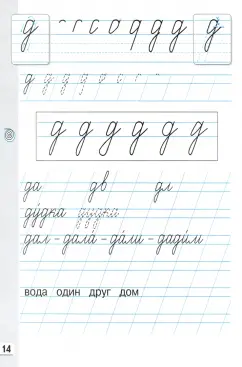 д ᴖ г с о q д д д
д д д д
д д д д д д
да дв дл
ду́дка дудка
дал – дала́ – да́ли – дади́м
вода один друг дом
14